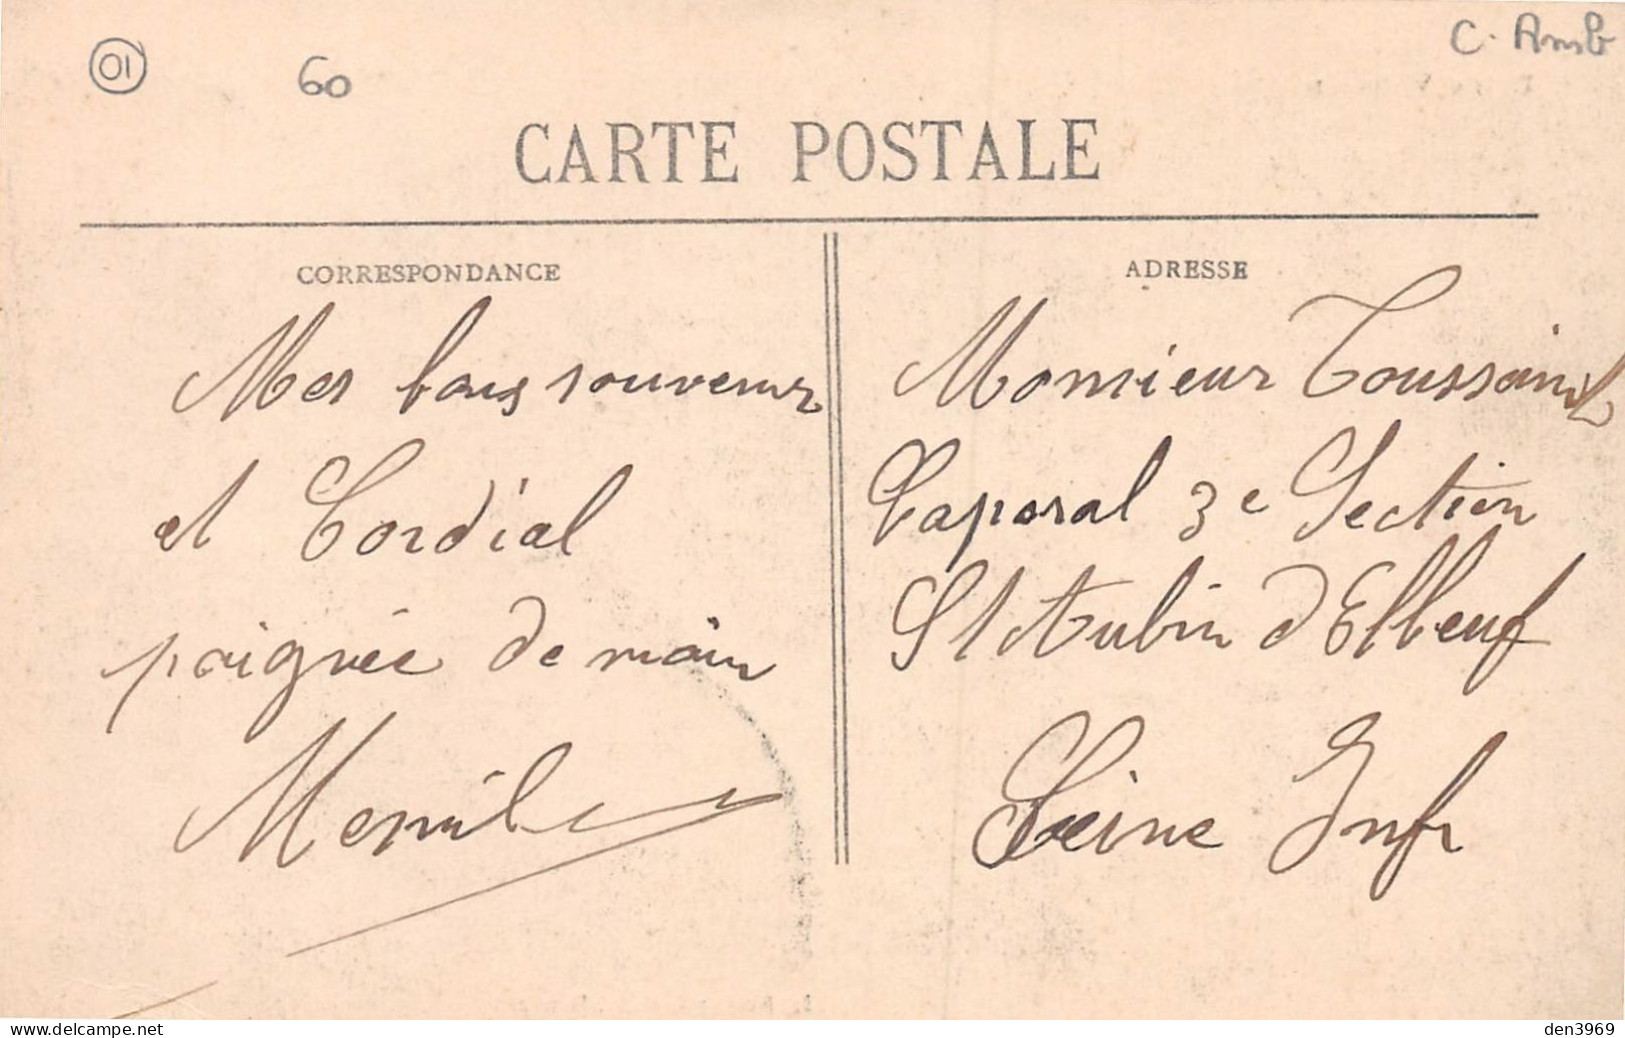 01
60
C. Amb
CARTE POSTALE
CORRESPONDANCE
Mes bons souvenirs
et Cordial
poignée de main
Mesnil
ADRESSE
Monsieur Toussaint
Caporal 3e Section
St Aubin d'Elbeuf
Seine Infr
www.delcampe.net
den3969